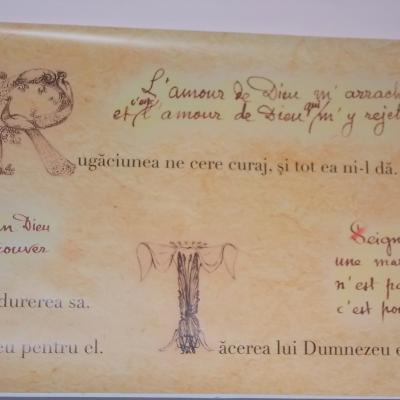 L'amour de Dieu m'arrach
et c'est l'amour de Dieu qui m'y rejet
Rugăciunea ne cere curaj, și tot ea ni-l dă.
n Dieu
rouver
Seign
une ma
n'est pa
c'est pou
durerea sa.
eu pentru el.
Tăcerea lui Dumnezeu e